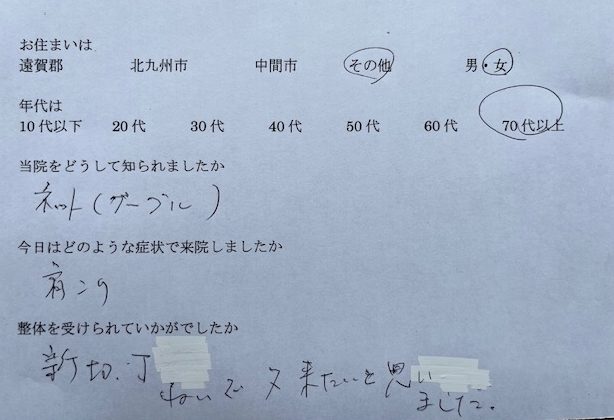 お住まいは
遠賀郡 北九州市 中間市 その他 男・女
年代は
10代以下 20代 30代 40代 50代 60代 70代以上
当院をどうして知られましたか
ネット(グーグル)
今日はどのような症状で来院しましたか
肩こり
整体を受けられていかがでしたか
新切、丁
ねいで又来たいと思い
ました。